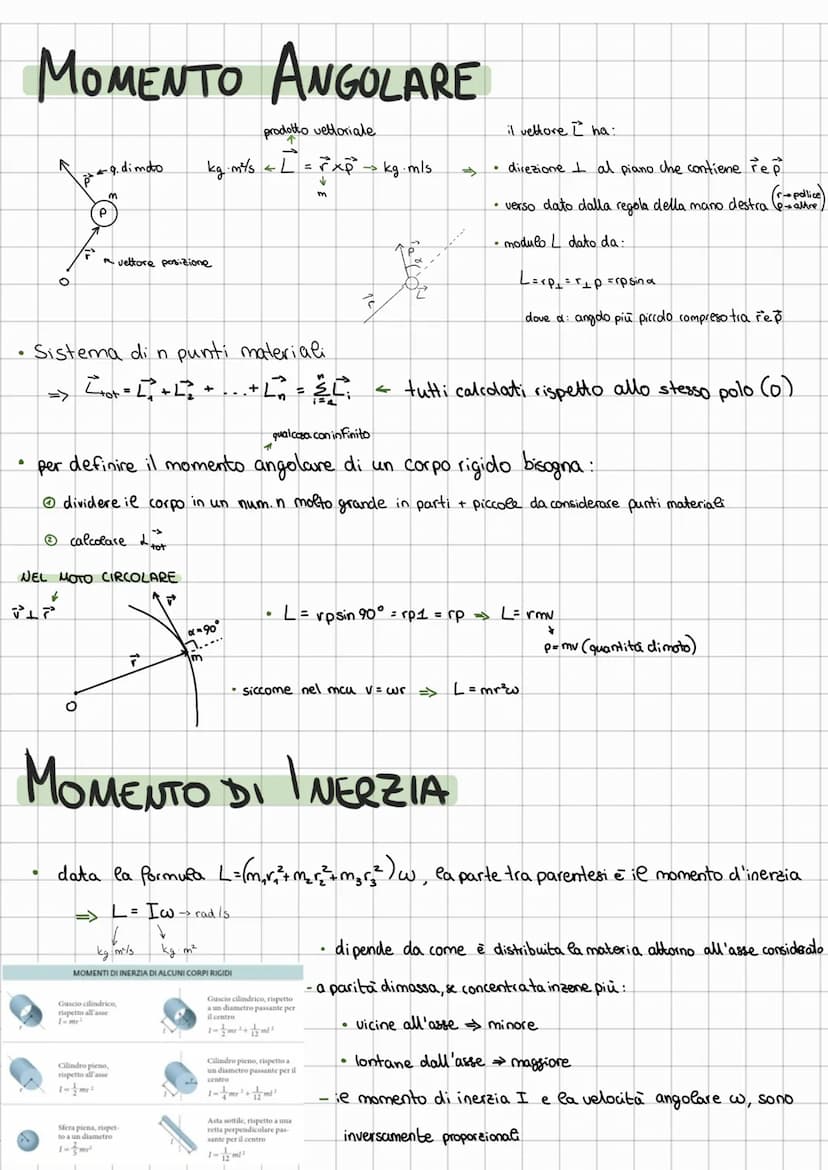 MOMENTO ANGOLARE
prodotto vettoriale
kg·m²/s ← L⃗ = r⃗ x p⃗ → kg·m/s ⇒
m
p⃗ ← q. di moto
m
P
r⃗ vettore posizione
O
il vettore L⃗ ha:
• direzione ⊥ al piano che contiene r⃗ e p⃗
• verso dato dalla regola della mano destra (r→pollice p→altre)
• modulo L dato da:
L = rp⊥ = r⊥p = rp sin α
dove α: angolo più piccolo compreso tra r⃗ e p⃗
p⃗
α
r⃗
L⃗
• Sistema di n punti materiali
⇒ L⃗tot = L⃗₁ + L⃗₂ + ... + L⃗n = Σ L⃗i ← tutti calcolati rispetto allo stesso polo (O)
n
i=1
qualcosa con infinito
• per definire il momento angolare di un corpo rigido bisogna:
① dividere il corpo in un num. n molto grande in parti + piccole da considerare punti materiali
② calcolare L⃗tot
NEL MOTO CIRCOLARE
v⃗ ⊥ r⃗
v⃗
α=90°
m
r⃗
O
• L = rp sin 90° = rp1 = rp ⇒ L = rmv
p = mv (quantità di moto)
• siccome nel mcu v = ωr ⇒ L = mr²ω
MOMENTO DI INERZIA
• data la formula L=(m₁r₁²+m₂r₂²+m₃r₃²)ω, la parte tra parentesi è il momento d'inerzia
⇒ L = Iω → rad/s
kg m²/s kg·m²
• dipende da come è distribuita la materia attorno all'asse considerato
- a parità di massa, se concentrata in zone più:
• vicine all'asse ⇒ minore
• lontane dall'asse ⇒ maggiore
- il momento di inerzia I e la velocità angolare ω, sono
inversamente proporzionali
MOMENTI DI INERZIA DI ALCUNI CORPI RIGIDI
Guscio cilindrico,
rispetto all'asse
I = mr²
Guscio cilindrico, rispetto
a un diametro passante per
il centro
I = 1/2 mr² + 1/12 ml²
Cilindro pieno,
rispetto all'asse
I = 1/2 mr²
Cilindro pieno, rispetto a
un diametro passante per il
centro
I = 1/4 mr² + 1/12 ml²
Sfera piena, rispet-
to a un diametro
I = 2/5 mr²
Asta sottile, rispetto a una
retta perpendicolare pas-
sante per il centro
I = 1/12 ml²